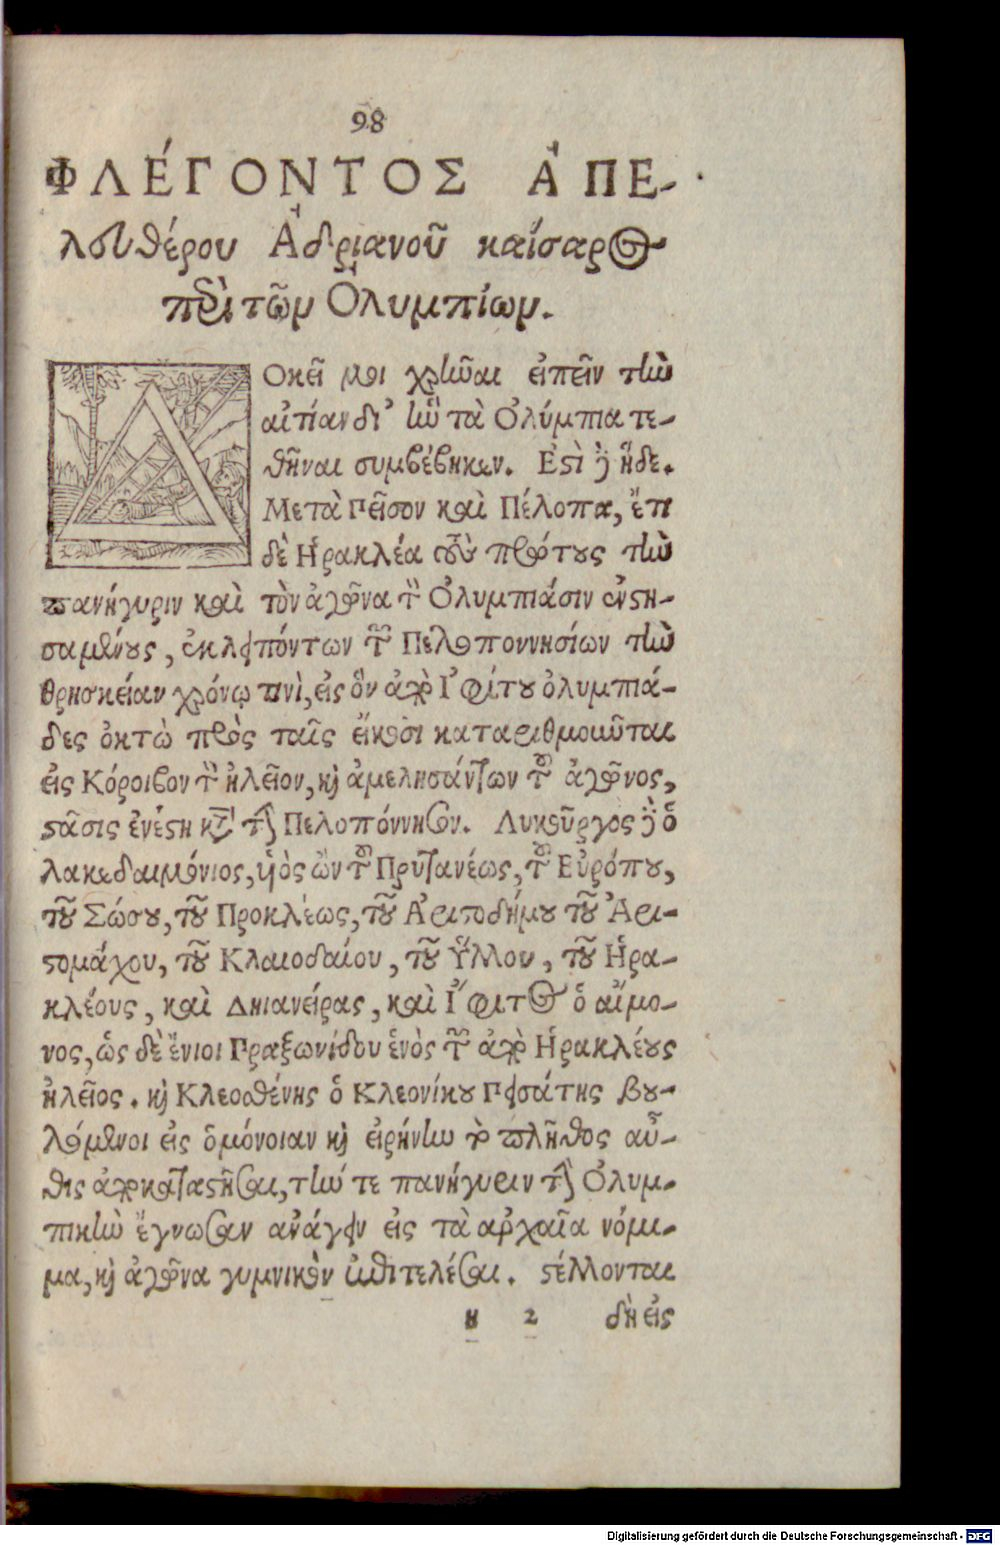 98
ΦΛΈΓΟΝΤΟΣ ἈΠΕ-
λευθέρου Ἀδριανοῦ καίσαρος
περὶ τῶν Ὀλυμπίων.
ΔΟκεῖ μοι χρῆναι εἰπεῖν τὴν
αἰτίαν δι' ἣν τὰ Ὀλύμπια τε-
θῆναι συμβέβηκεν. Ἐστὶ δὲ ἥδε.
Μετὰ Πεῖσον καὶ Πέλοπα, ἔτι
δὲ Ἡρακλέα τοὺς πρώτους τὴν
πανήγυριν καὶ τὸν ἀγῶνα τὸν Ὀλυμπιάσιν ἐνστη-
σαμένους, ἐκλειπόντων τῶν Πελοποννησίων τὴν
θρησκείαν χρόνῳ τινὶ, εἰς ὃν ἀπὸ Ἰφίτου ὀλυμπιά-
δες ὀκτὼ πρὸς ταῖς εἴκοσι καταριθμοῦνται
εἰς Κόροιβον τὸν ἠλεῖον, καὶ ἀμελησάντων τοῦ ἀγῶνος,
στάσις ἐνέστη κατὰ τὴν Πελοπόννησον. Λυκοῦργος δὲ ὁ
λακεδαιμόνιος, υἱὸς ὢν τοῦ Πρυτανέως, τοῦ Εὐρόπου,
τοῦ Σώου, τοῦ Προκλέως, τοῦ Ἀριστοδήμου τοῦ Ἀρι-
στομάχου, τοῦ Κλαιοδαίου, τοῦ Ὕλλου, τοῦ Ἡρα-
κλέους, καὶ Δηιανείρας, καὶ Ἴφιτος ὁ αἵμο-
νος, ὡς δὲ ἔνιοι Πραξωνίδου ἑνὸς τῶν ἀπὸ Ἡρακλέους
ἠλεῖος. καὶ Κλεοσθένης ὁ Κλεονίκου Πεισάτης βου-
λόμενοι εἰς ὁμόνοιαν καὶ εἰρήνην τὸ πλῆθος αὖ-
θις ἀποκαταστῆσαι, τήν τε πανήγυριν τὴν Ὀλυμ-
πικὴν ἔγνωσαν ἀνάγειν εἰς τὰ ἀρχαῖα νόμι-
μα, καὶ ἀγῶνα γυμνικὸν ἐπιτελέσαι. στέλλονται
n 2 δὴ εἰς
Digitalisierung gefördert durch die Deutsche Forschungsgemeinschaft - DFG